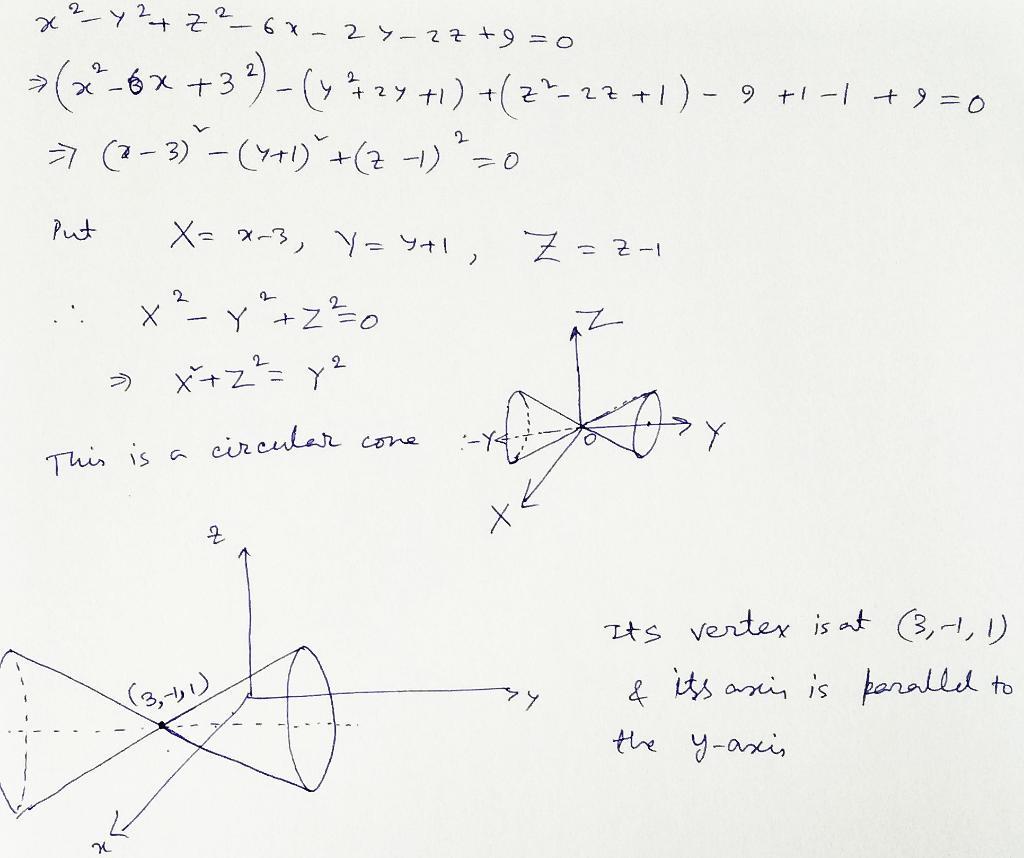 x² - y² + z² - 6x - 2y - 2z + 9 = 0
⇒ (x² - 6x + 3²) - (y² + 2y + 1) + (z² - 2z + 1) - 9 + 1 - 1 + 9 = 0
⇒ (x - 3)² - (y+1)² + (z - 1)² = 0
Put X = x-3, Y = y+1, Z = z-1
∴ X² - Y² + Z² = 0
⇒ X² + Z² = Y²
This is a circular cone
Z
-Y
O
Y
X
z
(3,-1,1)
y
x
Its vertex is at (3,-1, 1)
& its axis is parallel to
the y-axis